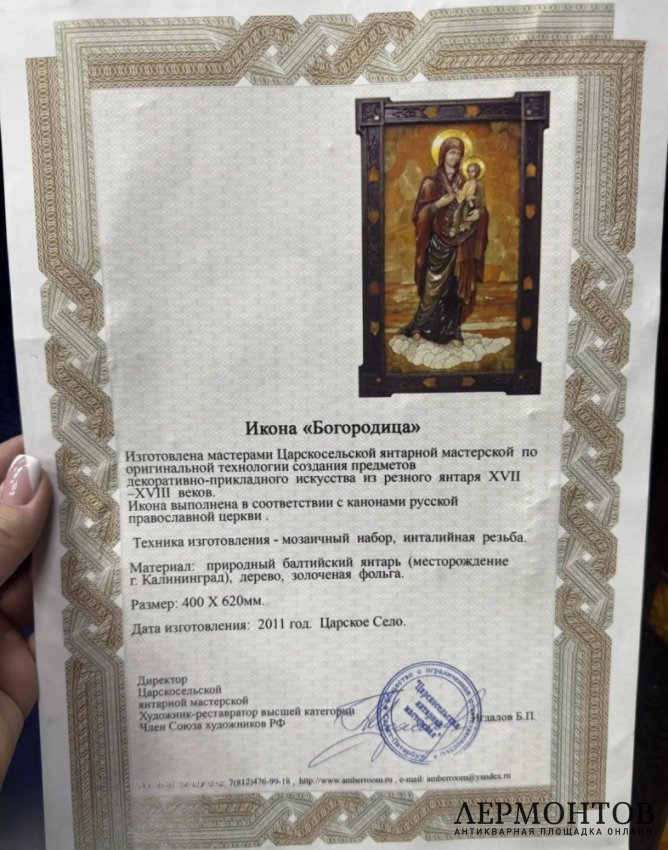 Икона «Богородица»
Изготовлена мастерами Царскосельской янтарной мастерской по
оригинальной технологии создания предметов
декоративно-прикладного искусства из резного янтаря XVII
–XVIII веков.
Икона выполнена в соответствии с канонами русской
православной церкви .
Техника изготовления - мозаичный набор, инталийная резьба.
Материал: природный балтийский янтарь (месторождение
г. Калининград), дерево, золоченая фольга.
Размер: 400 X 620мм.
Дата изготовления: 2011 год. Царское Село.
Директор
Царскосельской
янтарной мастерской
Художник-реставратор высшей категории
Член Союза художников РФ
Игдалов Б.П.
общество с ограниченной ответственностью
Санкт-Петербург
"Царскосельская
янтарная
мастерская"
7(812)476-99-18 , http://www.amberroom.ru , e-mail: amberroom@yandex.ru
ЛЕРМОНТОВ
АНТИКВАРНАЯ ПЛОЩАДКА ОНЛАЙН